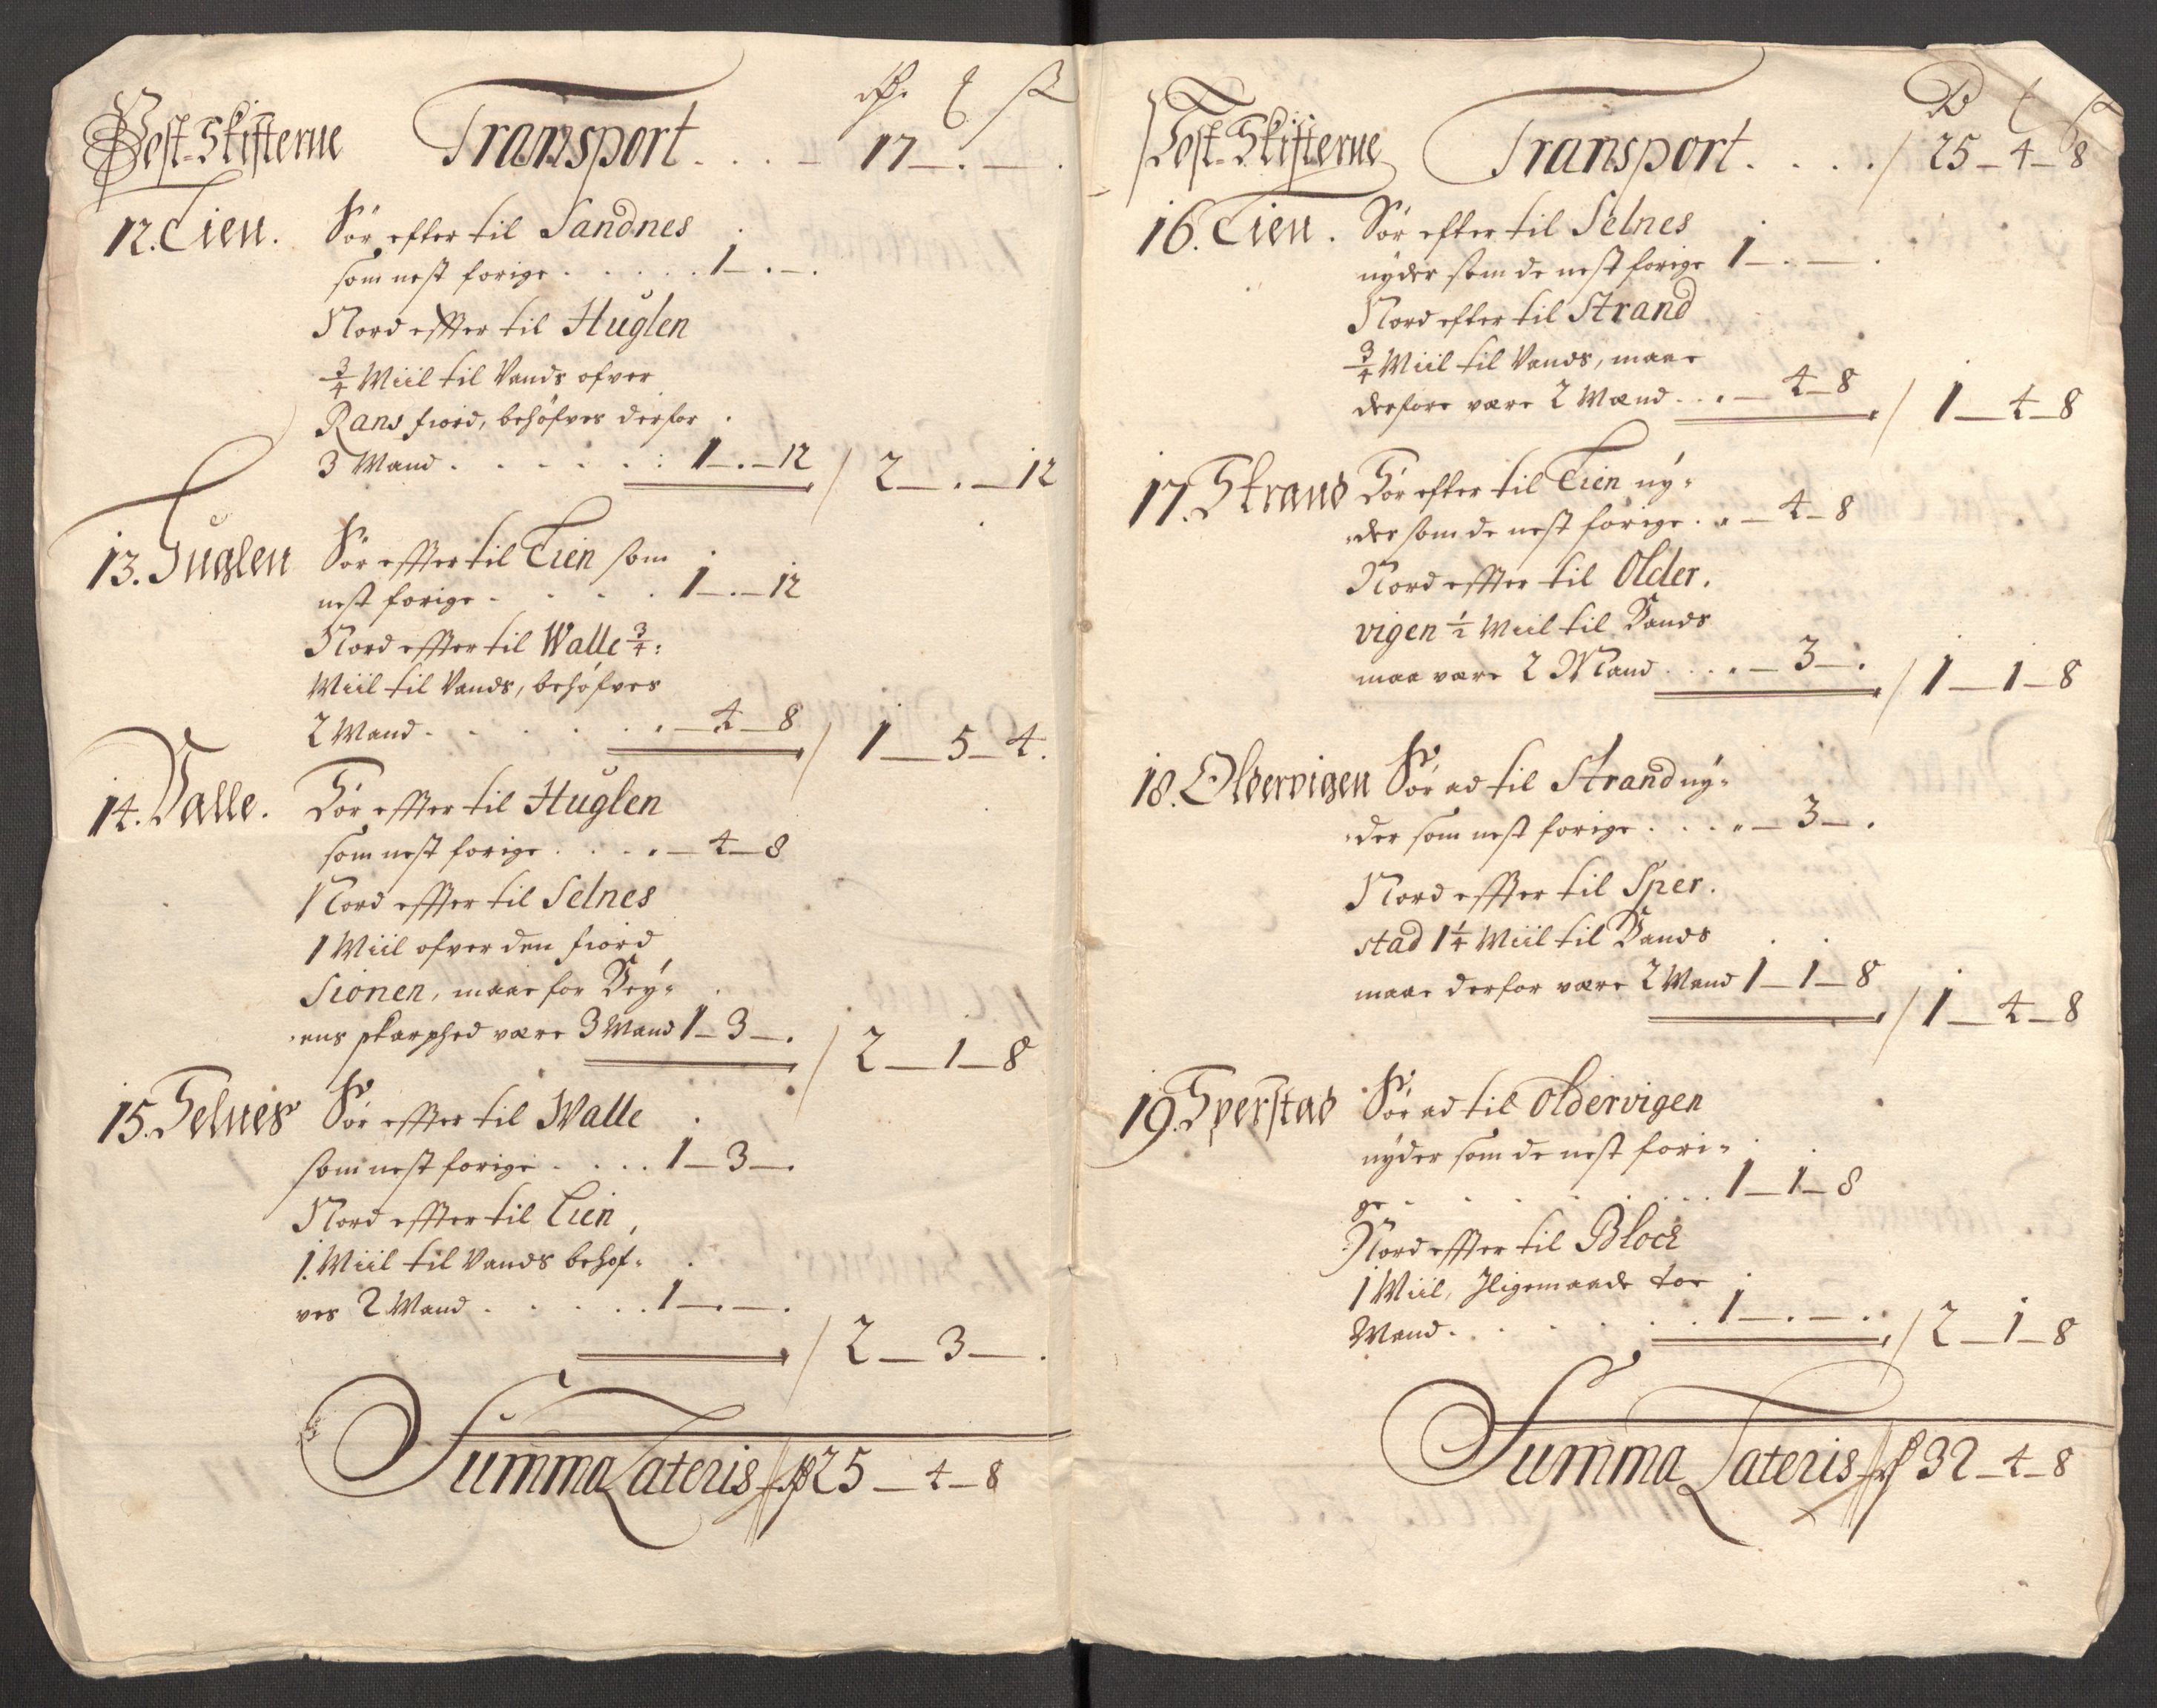 Post-Skifterne Transport . . . . 17 _ . _ .
12. Tien. Sör efter til Sandnes
som nest forige . . . . . 1 _ . _ .
Nord effter til Huglen
3/4 Miil til Vands ofver
Rans fiord, behöfves derfor
3 Mand . . . . . . : 1 _ . _ 12 / 2 _ . _ 12
13. Huglen Sör effter til Tien som
nest forige . . . . . 1 _ . _ 12
Nord effter til Walle 3/4:
Miil til Vands, behöfves
2 Mand . . . . . . _ 4 _ 8 / 1 _ 5 _ 4.
14. Valle. Sör effter til Huglen
som nest forige . . . . _ 4 _ 8
Nord effter til Selnes
1 Miil ofver den fiord
Sionen, maae for Vey-
ens skarphed være 3 Mand 1 _ 3 _ . / 2 _ 1 _ 8
15. Selnes Sör effter til Walle
som nest forige . . . . 1 _ 3 _ .
Nord effter til Tien,
1. Miil til Vands behöf-
ves 2 Mand . . . . . 1 _ . _ .
/ 2 _ 3 _ .
Summa Lateris 25 _ 4 _ 8
Post-Skifterne Transport . . . . / 25 _ 4 _ 8
16. Tien. Sör efter til Selnes
nyder som de nest forige 1 _ . _ .
Nord efter til Strand
3/4 Miil til Vands, maae
derfore være 2 Mænd . . . _ 4 _ 8 / 1 _ 4 _ 8
17. Strand Sör efter til Tien ny-
der som de nest forige . . _ 4 _ 8
Nord effter til Older-
vigen 1/2 Miil til Vands
maa være 2 Mand . . . . _ 3 _ . / 1 _ 1 _ 8
18. Oldervigen Sör ad til Strand ny-
der som nest forige . . . . _ 3 _ .
Nord effter til Sper-
stad 1 1/4 Miil til Vands
maae derfor være 2 Mand 1 _ 1 _ 8
/ 1 _ 4 _ 8
19. Sperstad Sör ad til Oldervigen
nyder som de nest fori-
ge . . . . . . . . 1 _ 1 _ 8
Nord effter til Bloch
1 Miil, Iligemaade toe
Mand . . . . . . . 1 _ . _ . . / 2 _ 1 _ 8
Summa Lateris 32 _ 4 _ 8